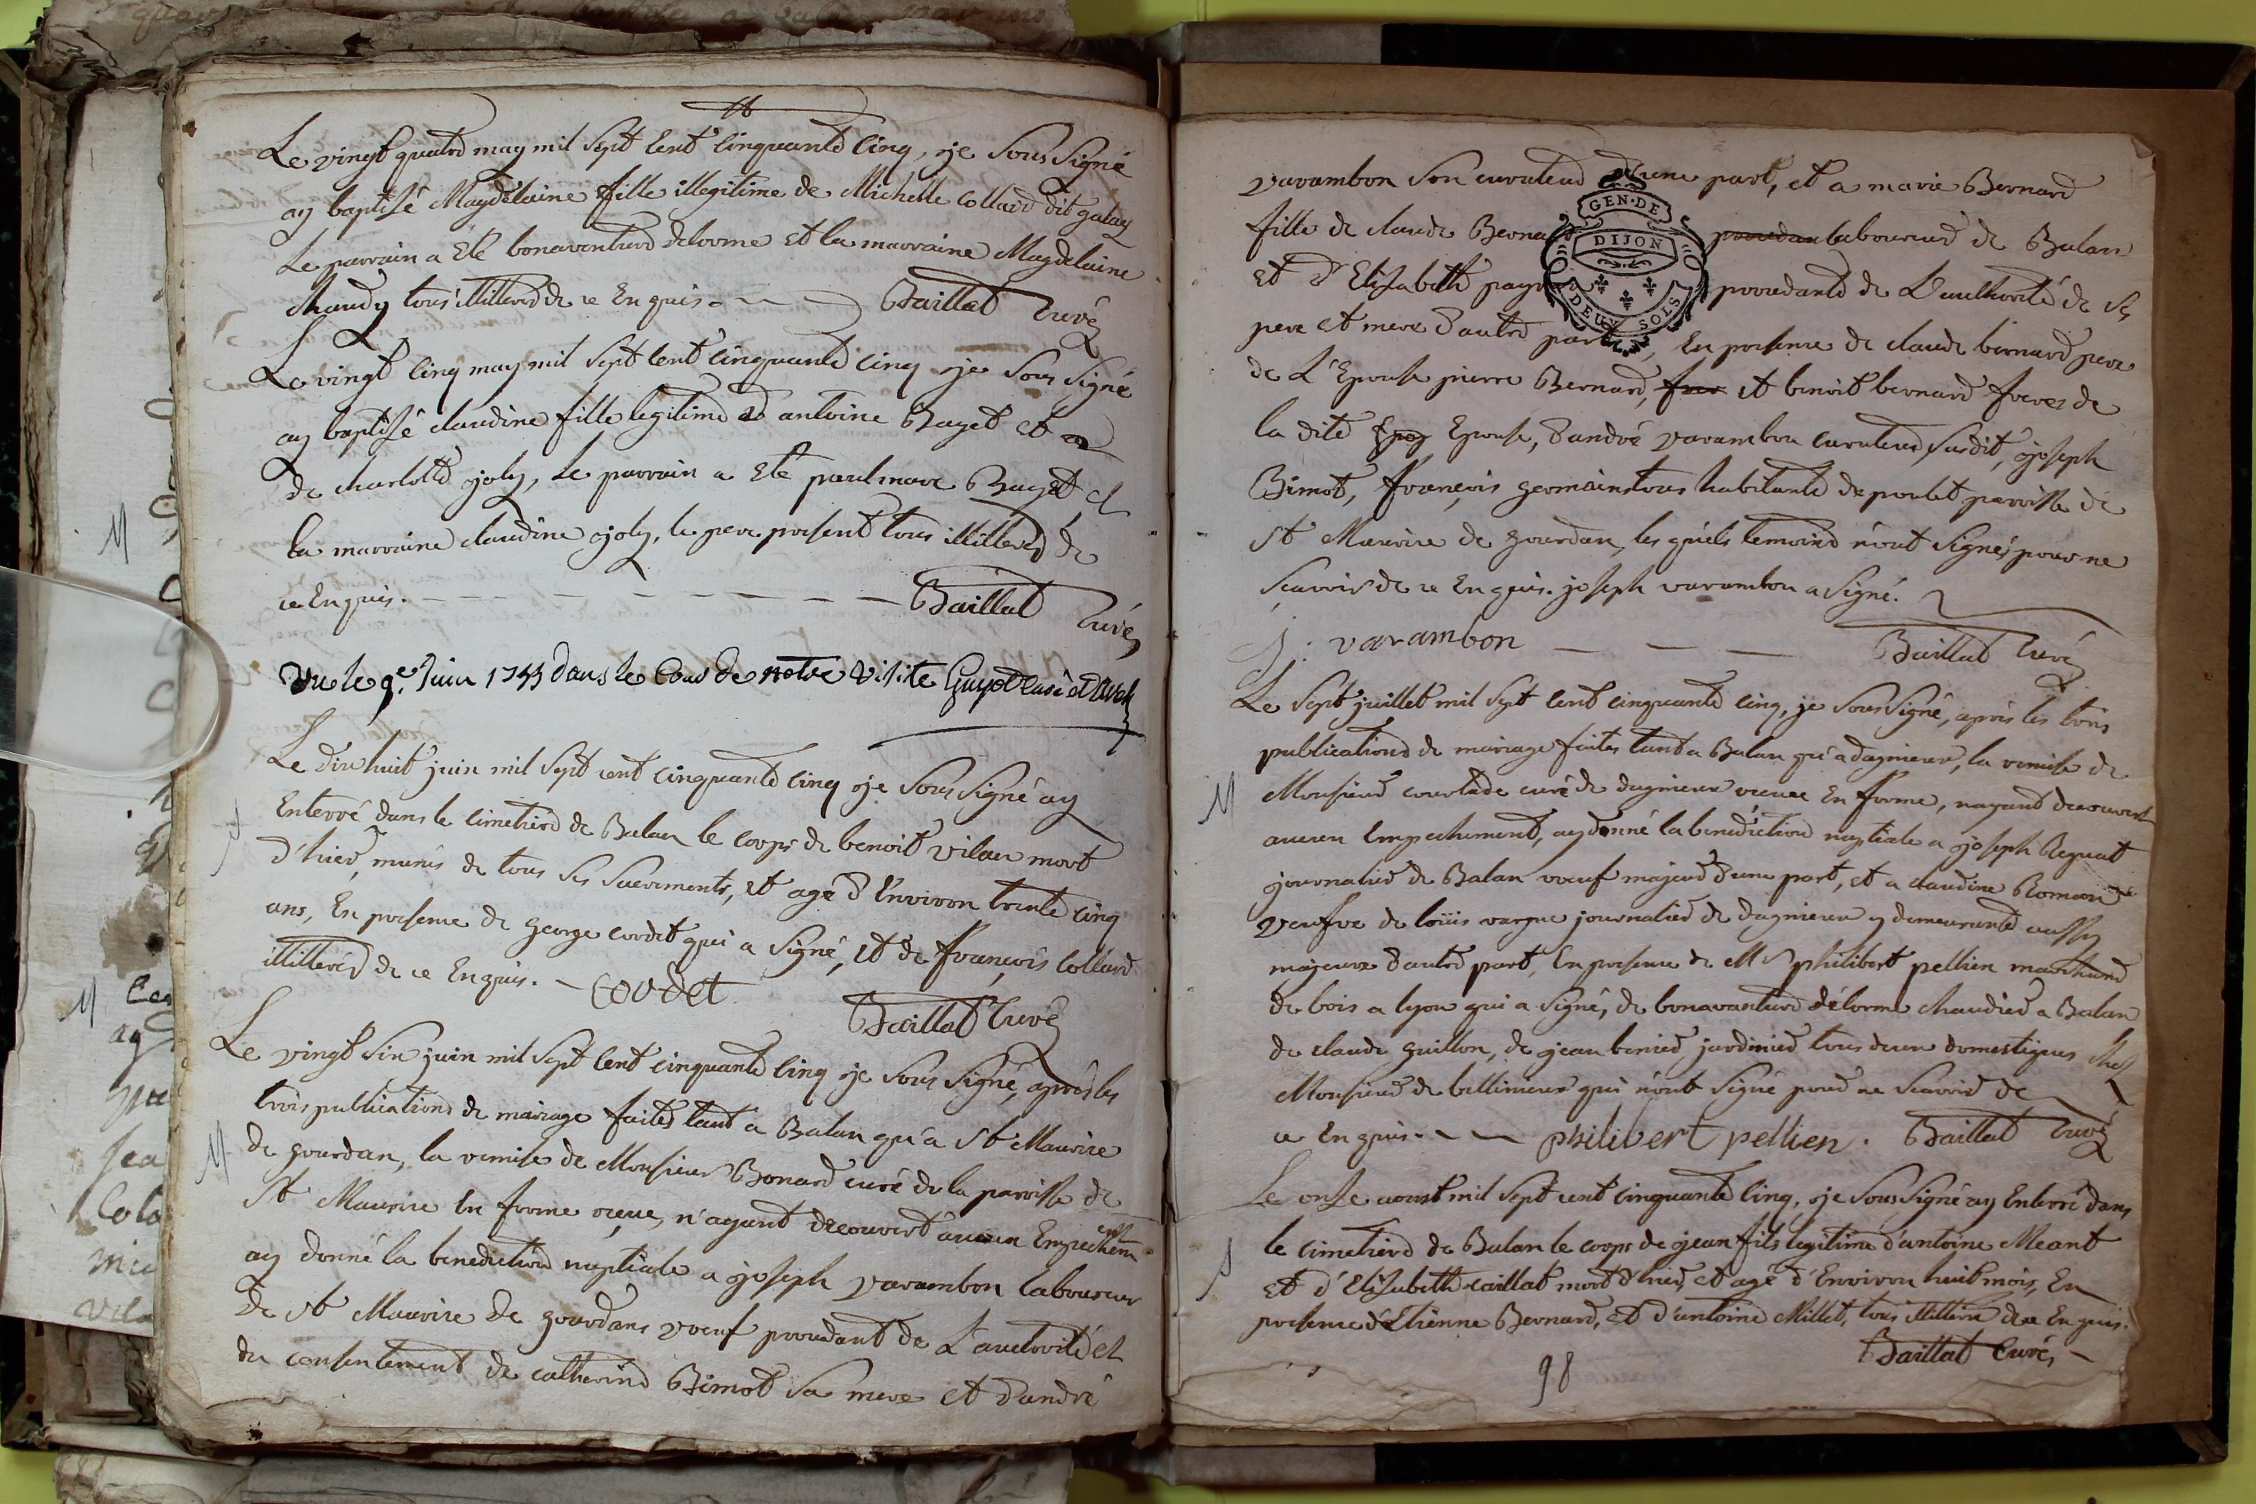 Le vingt quatre may mil sept cent cinquante cinq, je sous signé
ay baptisé Magdelaine fille illegitime de Michelle Collard dit galay
Le parrain a été bonaventure delorme et la marraine Magdelaine
chaudy tous illitteres de ce Enquis. Baillat Curé
Le vingt cinq may mil sept cent cinquante cinq je sous signé
ay baptisé claudine fille legitime d antoine Buget et
de charlotte joly, Le parrain a été paul marc Buget et
la marraine claudine joly, le pere present tous illitteres de
ce Enquis. Baillat Curé
Vu le 9e. Juin 1755 dans le Cours de notre Visite Guyot curé et
Le dix huit juin mil sept cent cinquante cinq je sous signé ay
Enterré dans le cimetiere de Balan le corps de benoit vilan mort
d'hier, munis de tous ses sacrements, et agé d'Environ trente cinq
ans, En presence de george cordet qui a signé, et de françois Collard
illitteré de ce Enquis. Cordet
Baillat Curé
Le vingt six juin mil sept cent cinquante cinq je sous signé, après les
trois publications de mariage faites tant a Balan qu'a St Maurice
de gourdan, la remise de Monsieur Bonard curé de la paroisse de
St Maurice En forme reçue, n'ayant decouvert aucun Empechem
ent
ay donné la benediction nuptiale a joseph varambon laboureur
de St Maurice de gourdans veuf procedant de L'authorité et
du consentement de catherine Bimot sa mere et d'andré
varambon son curateur d'une part, et a marie Bernard
fille de claude Bernard procedan laboureur de Balan
et d'Elisabeth procedante de L'authorité de ses
pere et mere d'autre part, En presence de claude bernard pere
de L'Epouse pierre Bernard, frer et benoit bernard freres de
la dite Epo Epouse, d'andré varambon curateur susdit, joseph
Bimot, françois germain tous habitants de poulet paroisse de
St Maurice de gourdan, les quels temoins n'ont signés pour ne
sçavoir de ce Enquis. joseph varambon a signé.
J: varambon Baillat Curé
Le sept juillet mil sept cent cinquante cinq, je sous signé, après les trois
publications de mariage faites tant a Balan qu'a dagnieux, la remise de
Monsieur courtade curé de dagnieux recue En forme, nayant decouvert
aucun Empechement, ay donné la benediction nuptiale a joseph
journalier de Balan veuf majeur d'une part, et a claudine
veufve de loüis journalier de dagnieux y demeurante aussy
majeure d'autre part, En presence de M. philibert pellien marchand
de bois a lyon qui a signé, de bonavanture délorme chaudier a Balan
de claude guillon, de jean benier jardinier tous deux domestiques chez
Monsieur de billinieux qui n'ont signé pour ne scavoir de
ce Enquis. philibert pellien. Baillat Curé
Le onze aoust mil sept cent cinquante cinq, je sous signé ay Enterré dans
le cimetiere de Balan le corps de jean fils legitime d'antoine Meant
et d'Elisabeth caillat mort d'hier, et agé d'Environ huit mois, En
presence d'Etienne Bernard, et d'antoine Millet, tous illitteré de ce Enquis.
Baillat Curé
98
GEN·DE
DIJON
DEUX SOLS